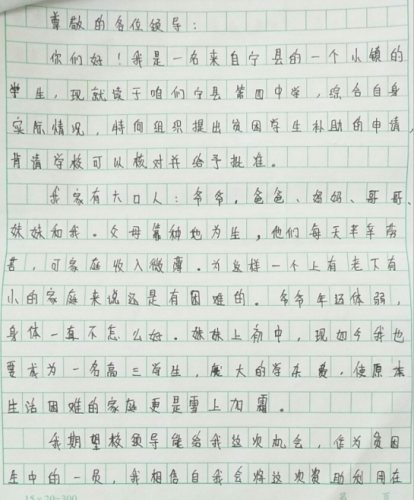 尊敬的各位领导：
你们好！我是一名来自宁县的一个小镇的
学生，现就读于咱们宁县第四中学，综合自身
实际情况，特向组织提出贫困学生补助的申请，
肯请学校可以核对并给予批准。
我家有六口人：爷爷，爸爸、妈妈、哥哥、
妹妹和我。父母靠种地为生，他们每天辛辛苦
苦，可家庭收入微薄。为这样一个上有老下有
小的家庭来说还是有困难的。爷爷年迈体弱，
身体一直不怎么好。妹妹上初中，现如今我也
要成为一名高三学生，庞大的学杂费，使原本
生活困难的家庭更是雪上加霜。
我期望校领导能给我这次机会，作为贫困
生中的一员，我相信自我会将这次资助利用在
15×20=300 第 页